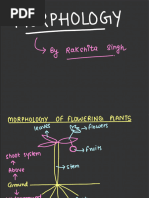 MORPHOLOGY
By Rakchita Singh
MORPHOLOGY OF FLOWERING PLANTS
leaves
flowers
fruits
shoot system
stem
Above
Ground